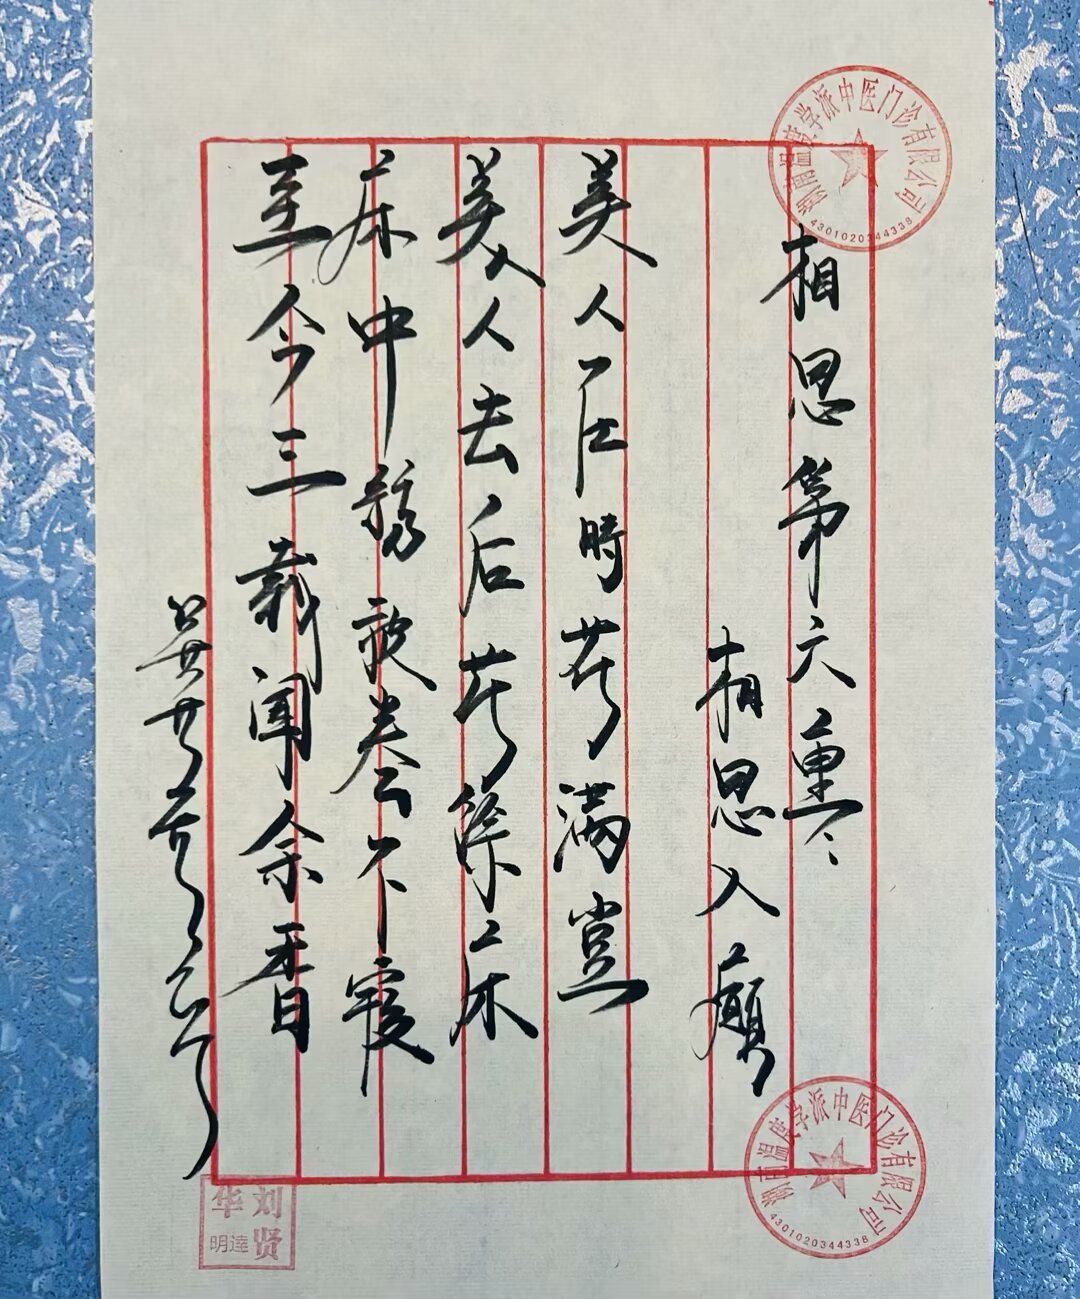 湖南温度学派中医门诊有限公司
4301020344338
相思第六重
相思入
美人在時花满堂
美人去后花馀床
床中绣被卷不寝
至今三载闻余香
刘贤华
明達
湖南温度学派中医门诊有限公司
4301020344338